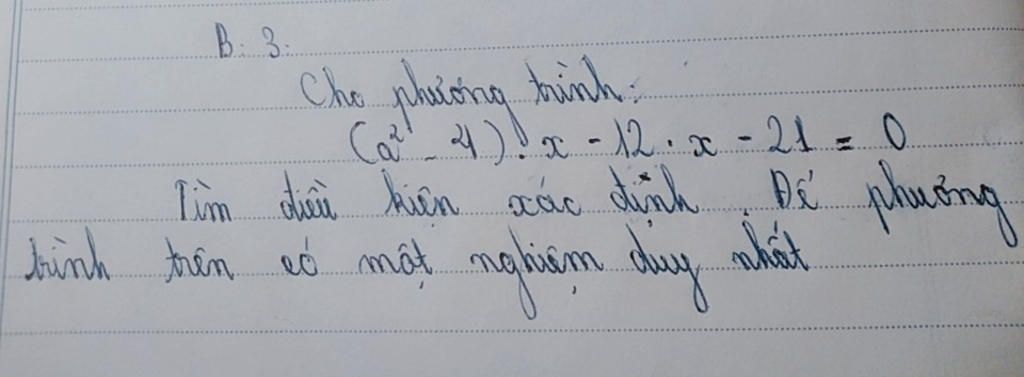 B. 3.
Cho phương trình:
(a² - 4). x - 12. x - 21 = 0
Tìm điều kiện xác định. Để phương
trình trên có một nghiệm duy nhất